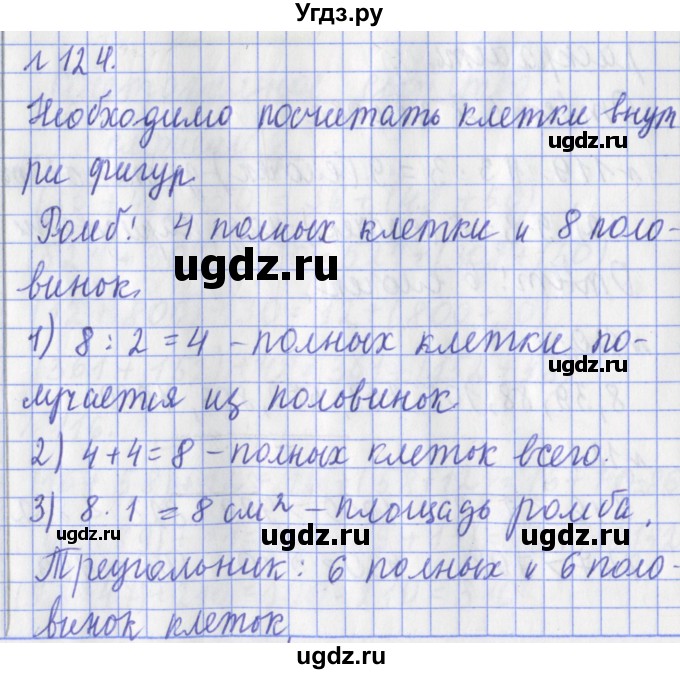 Угдз.ру
№124.
Необходимо посчитать клетки внут
ugdz.ru
ри фигур.
Ромб: 4 полных клетки и 8 поло-
ugdz.ru
винок.
1) 8 : 2 = 4 – полных клетки по-
лучается из половинок.
ugdz.ru
2) 4 + 4 = 8 – полных клеток всего.
3) 8 · 1 = 8 см² – площадь ромба.
ugdz.ru
Треугольник: 6 полных и 6 поло-
винок клеток.
ugdz.ru
ugdz.ru